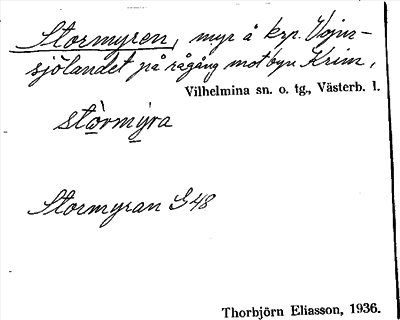 Stormyren, myr å krp. Vojm-
sjölandet på rågång mot byn Krim,
Vilhelmina sn. o. tg., Västerb. l.
stòrmýra
Stormyran G 48
Thorbjörn Eliasson, 1936.